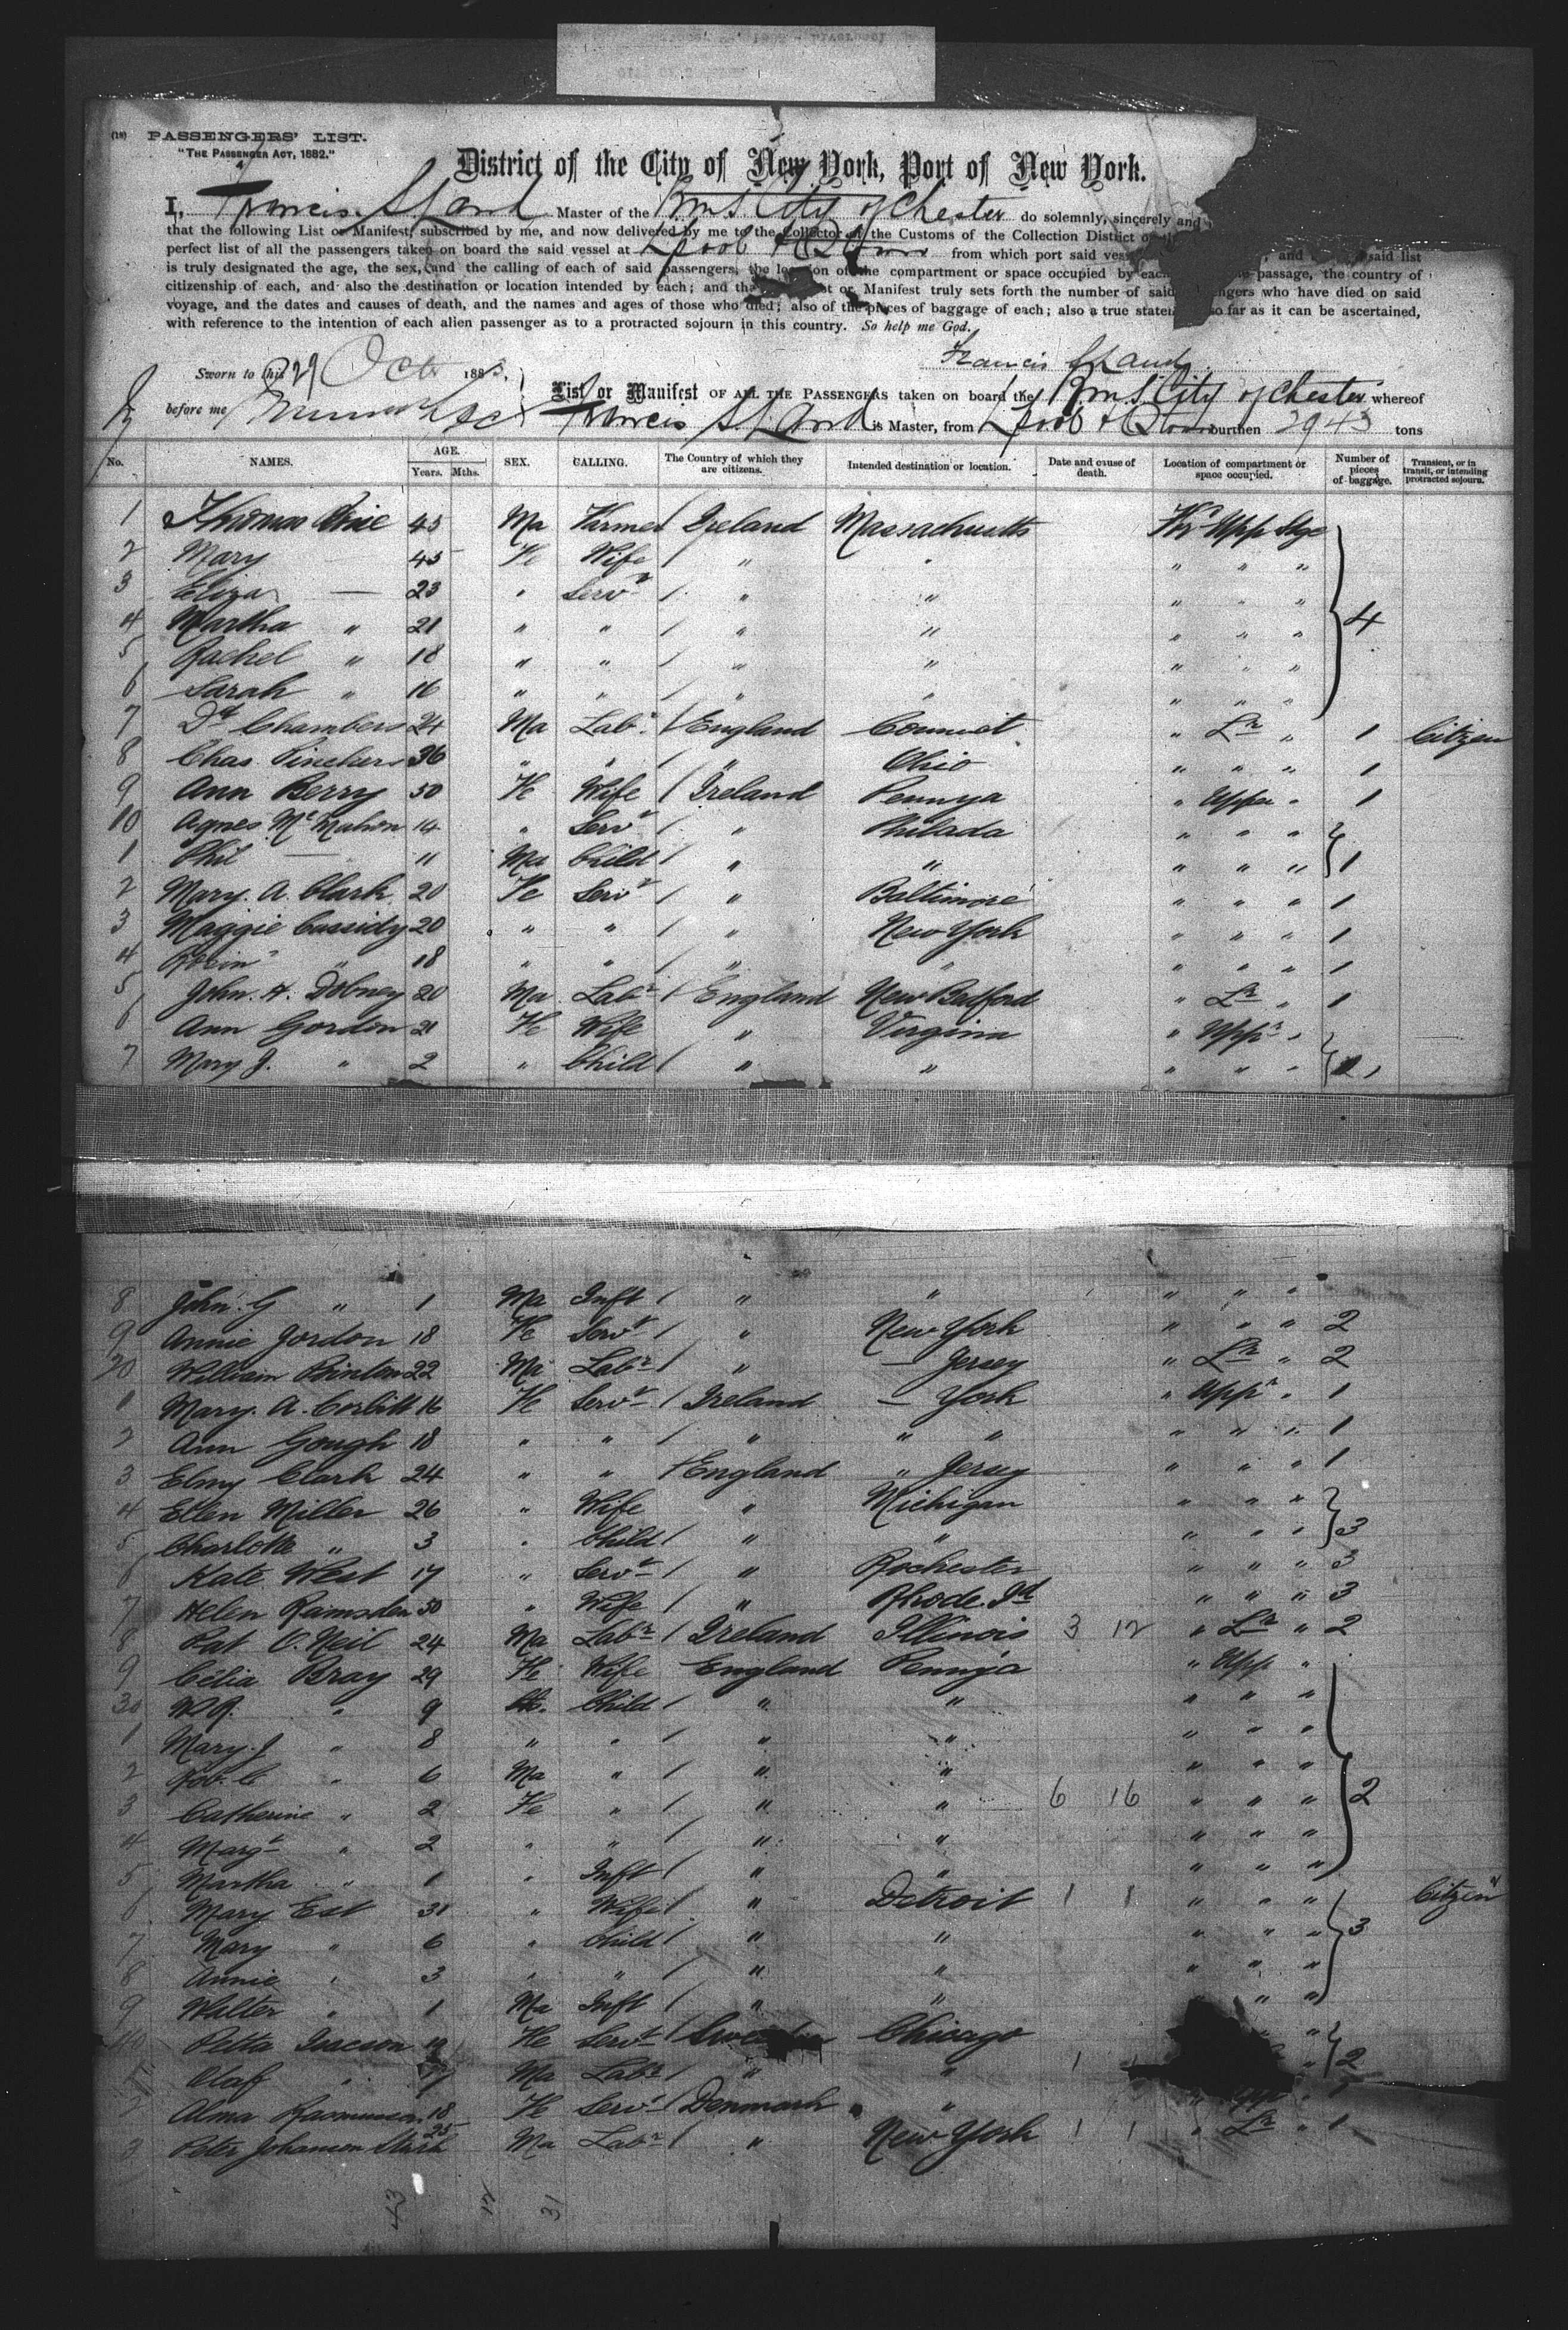 (18) PASSENGERS' LIST.
"THE PASSENGER ACT, 1882."
District of the City of New York, Port of New York.
I, Francis S. Land Master of the Rm S. City of Chester do solemnly, sincerely and
that the following List or Manifest, subscribed by me, and now delivered by me to the Collector of the Customs of the Collection District of the
perfect list of all the passengers taken on board the said vessel at Lpool & QTown from which port said vessel and said list
is truly designated the age, the sex, and the calling of each of said passengers, the location of the compartment or space occupied by each passage, the country of
citizenship of each, and also the destination or location intended by each; and that or Manifest truly sets forth the number of said passengers who have died on said
voyage, and the dates and causes of death, and the names and ages of those who died; also of the pieces of baggage of each; also a true statement so far as it can be ascertained,
with reference to the intention of each alien passenger as to a protracted sojourn in this country. So help me God.
Sworn to this 29 Octr 188
Francis S Land
before me
List or Manifest OF ALL THE PASSENGERS taken on board the Rm S. City of Chester whereof
Francis S. Land is Master, from Lpool & QTown burthen 2943 tons
No. NAMES. AGE. Years. Mths. SEX. CALLING. The Country of which they are citizens. Intended destination or location. Date and cause of death. Location of compartment or space occupied. Number of pieces of baggage. Transient, or in transit, or intending protracted sojourn.
1 Thomas 45 Ma Farmer / Ireland Massachusetts Fw Upp Stge
2 Mary 45 Fe Wife / " " " " "
3 Eliza — 23 " Servt / " " " " "
4 Martha " 21 " " / " " " " " 4
5 Rachel " 18 " " / " " " " "
6 Sarah " 16 " " / " " " " "
7 Dd Chambers 24 Ma Labr / England Connect. " Lr " 1 Citizen
8 Chas. Pinchers 36 " " / " Ohio " " " 1
9 Ann Berry 50 Fe Wife / Ireland Pennya " Upper " 1
10 Agnes McMahon 14 " Servt / " Philada " " "
1 Phil — 11 Ma Child / " " " " " 1
2 Mary. A. Clark 20 Fe Servt / " Baltimore " " " 1
3 Maggie Cassidy 20 " " / " New York " " " 1
4 " 18 " " / " " " " " 1
5 John. H. Dobney 20 Ma Labr / England New Bedford " Lr " 1
6 Ann Gordon 21 Fe Wife " Virginia " Uppr "
7 Mary J. " 2 " Child / " " " " "
8 John. G " 1 Ma Inft / " " " " "
9 Annie Jordon 18 Fe Servt / " New York " " " 2
20 William Binton 22 Ma Labr / " — Jersey " Lr " 2
1 Mary. A. Corbitt 16 Fe Servt / Ireland — York " Uppr " 1
2 Ann Gough 18 " " / " " " " " " 1
3 Clark 24 " " / England " Jersey " " " 1
4 Ellen Miller 26 " Wife " Michigan " " "
5 Charlotte " 3 " Child / " " " " " 3
6 Kate West 17 " Servt / " Rochester " " " 3
7 Helen Ramsden 50 " Wife / " Rhode. Id " " " 3
8 Pat O. Neil 24 Ma Labr / Ireland Illinois 3 12 " Lr " 2
9 Celia Bray 29 Fe Wife England Pennya " Upp "
30 " 9 Child / " " " " "
1 Mary. J " 8 " " / " " " " "
2 Rob. C " 6 Ma " / " " " " "
3 Catherine " 2 Fe " / " " 6 16 " " " 2
4 Margt " 2 " " / " " " " "
5 Martha " 1 " Inft / " " " " "
6 Mary Est 31 " Wife / " Detroit 1 1 " " " Citizen
7 Mary " 6 " Child / " " " " " 3
8 Annie " 3 " " / " " " " "
9 Walter " 1 Ma Inft / " " " "
40 Petta Isacson 19 Fe Servt Chicago "
Olaf " Ma Labr / " " 1 " 2
2 Alma Rasmussen 18 Fe Servt / Denmark " " Upp " 1
3 Peter Johanson 25 Ma Labr / " New York 1 1 " Lr " 1
43 12 31